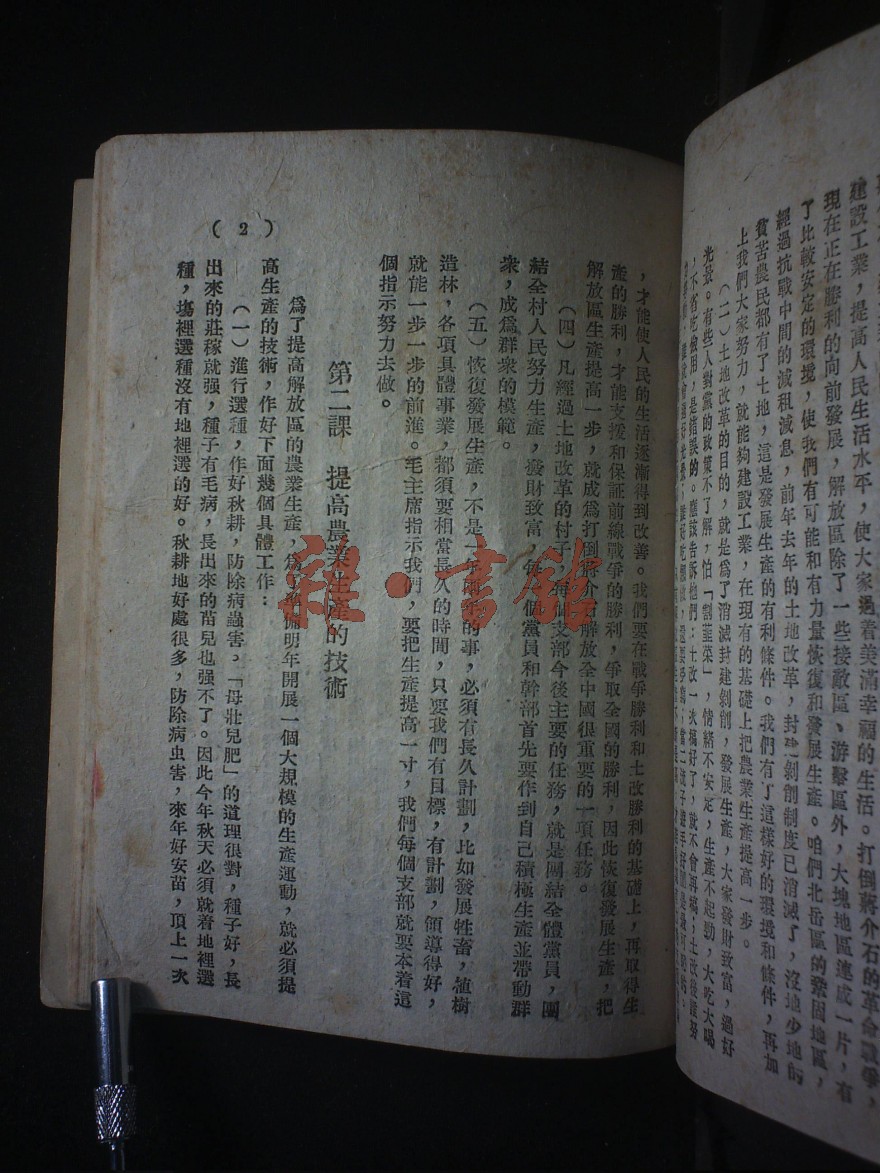 建設工業，提高人民生活水平，使大家過着美滿幸福的生活。打倒蔣介石的革命戰爭，
現在正在勝利的向前發展，解放區除了一些接敵區、游擊區外，大塊地區連成一片，有
了比較安定的環境，使我們有可能和有力量恢復和發展生產。咱們北岳區的鞏固地區，
經過抗戰中間的減租減息，前年去年的土地改革，封建剝削制度已消滅了，沒地少地的
貧苦農民都有了土地，這是發展生產的有利條件。我們有了這樣好的環境和條件，再加
上我們大家努力，就能夠建設工業，在現有的基礎上把農業生產提高一步。
（二）土地改革的目的，就是爲了消滅封建剝削，發展生產，大家發財致富，過好
光景。有些人對黨的政策不了解，怕「割韮菜」，情緒不安定，生產不起勁，大吃大喝
，不省吃儉用，是錯誤的。應該告訴他們：土改一次搞好了，就不會再搞；土改後誰努
，才能使人民的生活逐漸得到改善。我們要在戰爭勝利和土改勝利的基礎上，再取得生
產的勝利，才能支援和保証前線戰爭的勝利，爭取全國的勝利，因此恢復發展生產，把
解放區生產提高一步，就成爲打倒蔣介石解放全中國很重要的一項任務。
（四）凡經過土地改革的村子，每個支部今後主要的任務，就是團結全體黨員，團
結全村人民努力生產，發財致富，每個黨員和幹部首先要作到自己積極生產並帶動群
衆，成爲群衆的模範。
（五）恢復發展生產，不是一年兩年的事，必須有長久計劃，比如發展牲畜，植樹
造林，各項具體事業，都須要相當長久的時間，只要我們有目標，有計劃，領導得好，
就能一步一步的前進。毛主席指示我們，要把生產提高一寸，我們每個支部就要本着這
個指示努力去做。
第二課　提高農業生產的技術
爲了提高解放區的農業生產，爲了準備明年開展一個大規模的生產運動，就必須提
高生產的技術，作好下面幾個具體工作：
（一）進行選種，作好秋耕，防除病蟲害。「母壯兒肥」的道理很對，種子好，長
出來的莊稼就强，種子有毛病，長出來的苗兒也强不了。因此今年秋天必須就着地裡選
種，場裡選種沒有地裡選的好。秋耕地好處很多，防除病虫害，來年好安苗，頂上一次
（2）
雜·書館